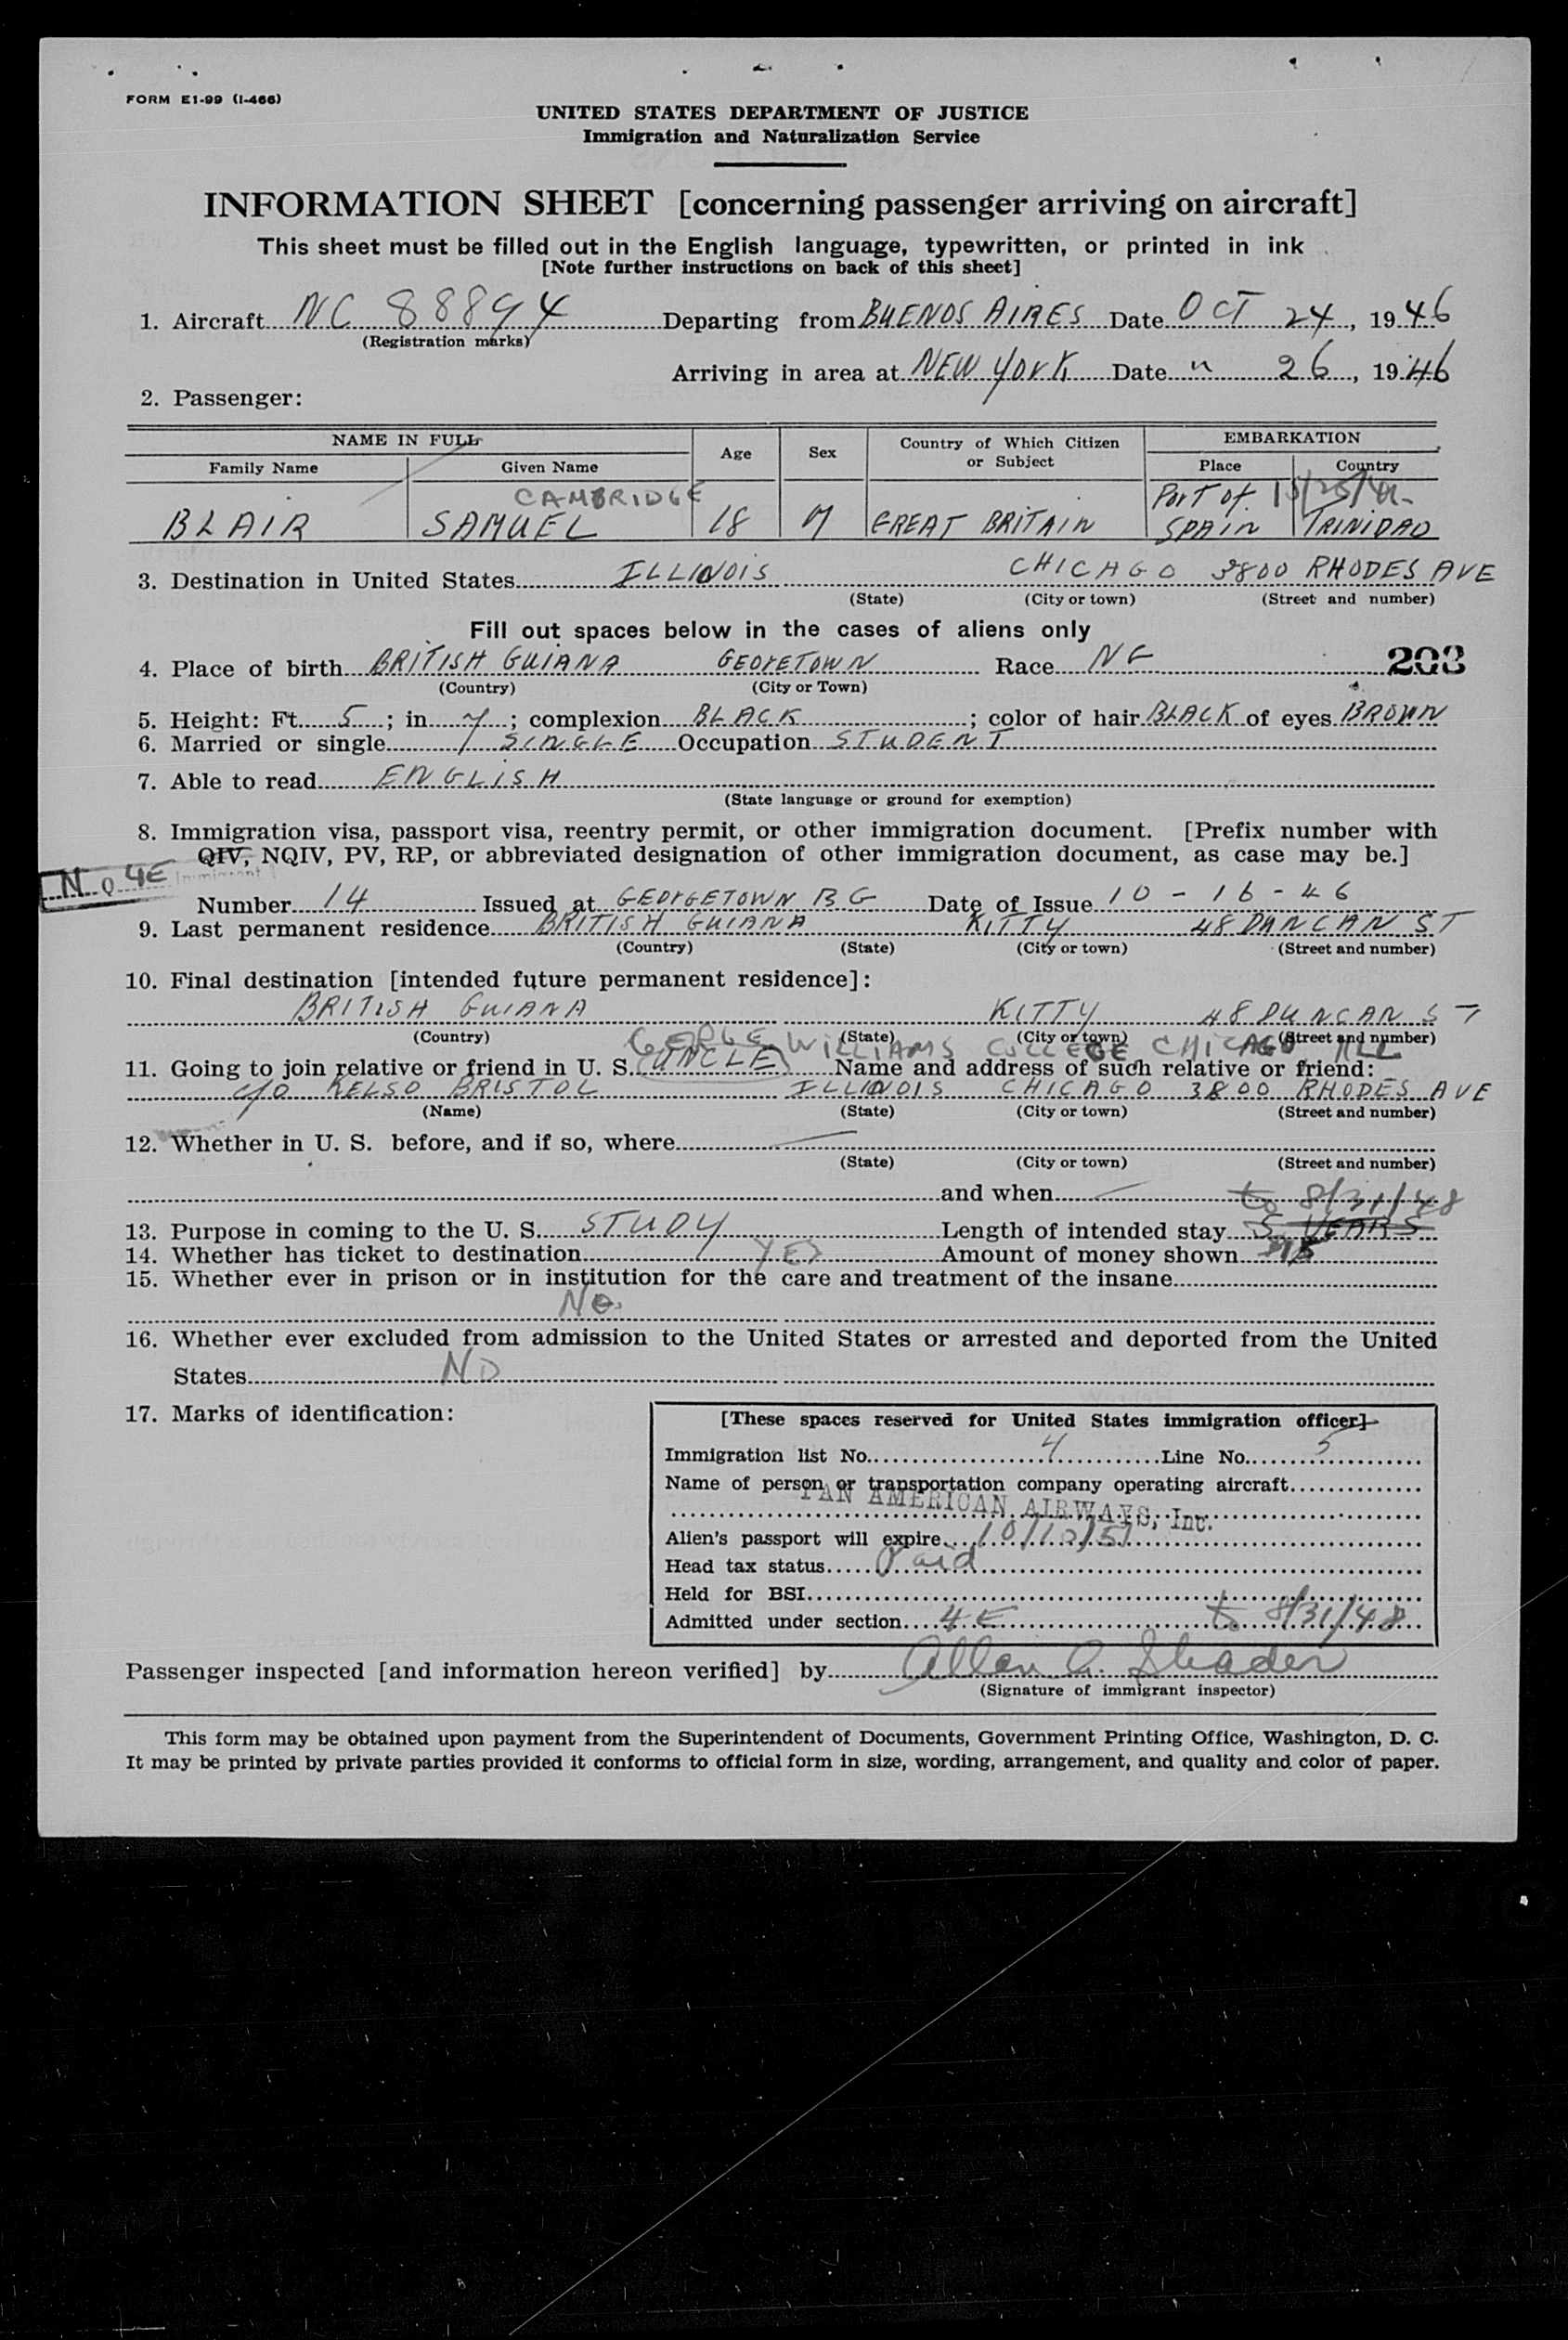 FORM E1-99 (I-466)
UNITED STATES DEPARTMENT OF JUSTICE
Immigration and Naturalization Service
INFORMATION SHEET [concerning passenger arriving on aircraft]
This sheet must be filled out in the English language, typewritten, or printed in ink
[Note further instructions on back of this sheet]
1. Aircraft NC 88894 Departing from BUENOS AIRES Date OCT 24, 1946
(Registration marks)
Arriving in area at NEW YORK Date " 26, 1946
2. Passenger:
NAME IN FULL Age Sex Country of Which Citizen or Subject EMBARKATION
Family Name Given Name Place Country
CAMBRIDGE Port of
BLAIR SAMUEL 18 M GREAT BRITAIN SPAIN TRINIDAD
3. Destination in United States ILLINOIS CHICAGO 3800 RHODES AVE
(State) (City or town) (Street and number)
Fill out spaces below in the cases of aliens only
4. Place of birth BRITISH GUIANA GEORGETOWN Race NG 203
(Country) (City or Town)
5. Height: Ft. 5; in 7; complexion BLACK; color of hair BLACK of eyes BROWN
6. Married or single SINGLE Occupation STUDENT
7. Able to read ENGLISH
(State language or ground for exemption)
8. Immigration visa, passport visa, reentry permit, or other immigration document. [Prefix number with
QIV, NQIV, PV, RP, or abbreviated designation of other immigration document, as case may be.]
N Q 4E Immigrant
Number 14 Issued at GEORGETOWN BG Date of Issue 10-16-46
9. Last permanent residence BRITISH GUIANA KITTY 48 DUNCAN ST
(Country) (State) (City or town) (Street and number)
10. Final destination [intended future permanent residence]:
BRITISH GUIANA KITTY 48 DUNCAN ST
(Country) (State) (City or town) (Street and number)
GEORGE WILLIAMS COLLEGE CHICAGO ILL
11. Going to join relative or friend in U. S. (UNCLE) Name and address of such relative or friend:
c/o KELSO BRISTOL ILLINOIS CHICAGO 3800 RHODES AVE
(Name) (State) (City or town) (Street and number)
12. Whether in U. S. before, and if so, where
(State) (City or town) (Street and number)
and when
to 8/31/48
13. Purpose in coming to the U. S. STUDY Length of intended stay 5 YEARS
14. Whether has ticket to destination YES Amount of money shown
15. Whether ever in prison or in institution for the care and treatment of the insane
No
16. Whether ever excluded from admission to the United States or arrested and deported from the United
States NO
17. Marks of identification:
[These spaces reserved for United States immigration officer]
Immigration list No. 4 Line No. 5
Name of person or transportation company operating aircraft
PAN AMERICAN AIRWAYS, Inc.
Alien's passport will expire 10/10/51
Head tax status Paid
Held for BSI
Admitted under section 4E to 8/31/48
Passenger inspected [and information hereon verified] by Allen A. Shader
(Signature of immigrant inspector)
This form may be obtained upon payment from the Superintendent of Documents, Government Printing Office, Washington, D. C.
It may be printed by private parties provided it conforms to official form in size, wording, arrangement, and quality and color of paper.